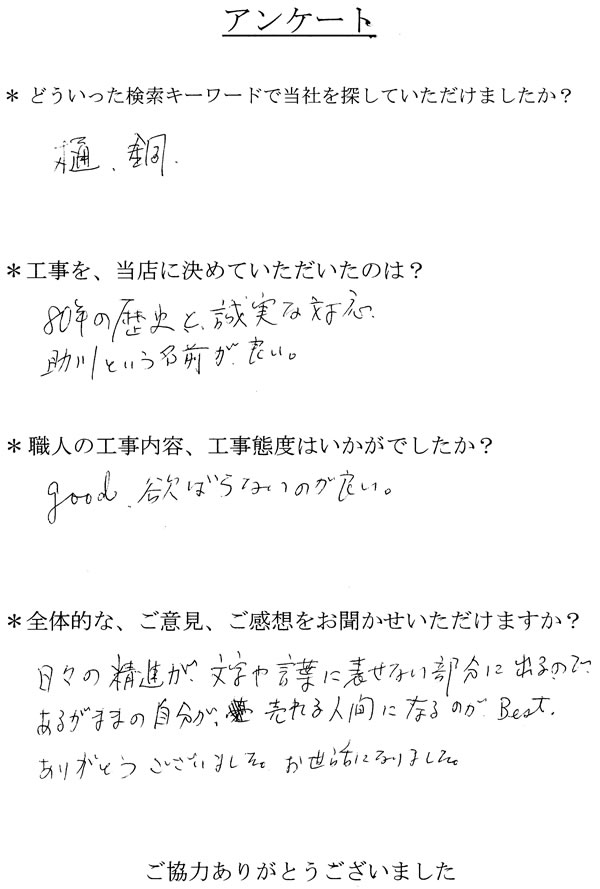 アンケート
＊ どういった検索キーワードで当社を探していただけましたか？
樋、銅.
＊工事を、当店に決めていただいたのは？
80年の歴史と、誠実な対応.
助川という名前が良い。
＊職人の工事内容、工事態度はいかがでしたか？
good、欲ばらないのが良い。
＊全体的な、ご意見、ご感想をお聞かせいただけますか？
日々の精進が、文字や言葉に表せない部分に出るので
あるがままの自分が、売れる人間になるのが Best.
ありがとうございました。お世話になりました。
ご協力ありがとうございました